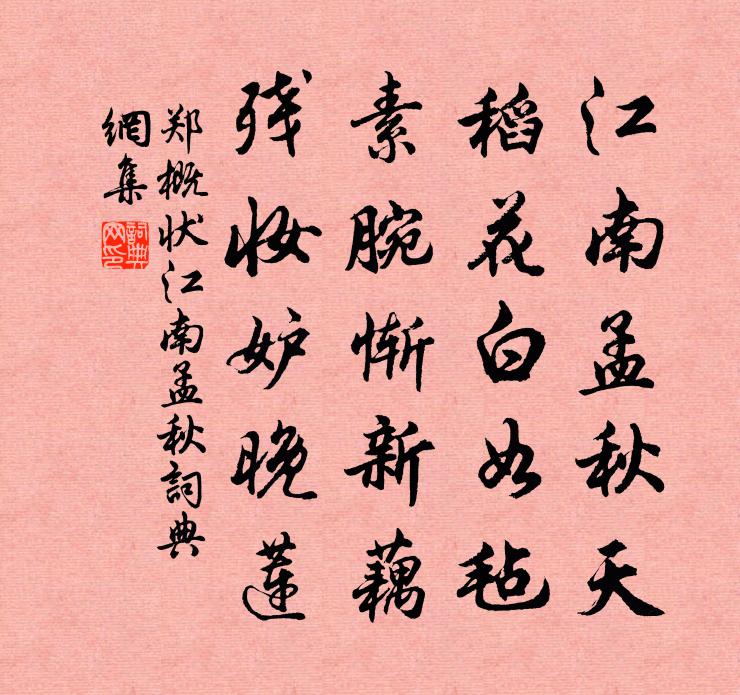 江南孟秋天
稻花白如毡
素腕惭新藕
残妆妒晚莲
郑概状江南孟秋詞典
網集
詞典
网印